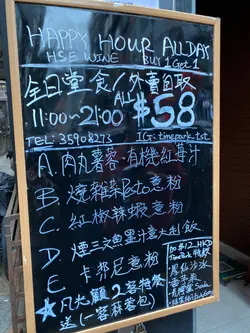 HAPPY HOUR ALLDAY
HSE WINE BUY 1 Get 1
全日堂食/外賣自取
11:00~21:00 ALL $58
TEL: 35908273 IG: timepark.tst
A. 肉丸薯蓉·有機紅莓汁
B. 燒雜菜Pesto意粉
C. 紅椒辣蝦意粉
D. 煙三文魚墨汁意大利飯
E. 卡邦尼意粉
*凡光顧2客特餐
送(一客蒜蓉包)
加$12 HKD
TimePark 特飲